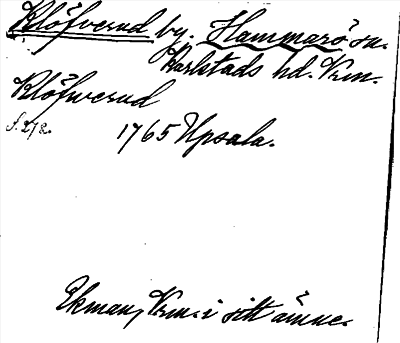 Klöfverud by. Hammarö sn.
Karlstads hd. Vrm.
Klöfwerud
s. 272. 1765 Upsala.
Ekman, Vrm. i sitt ämne.